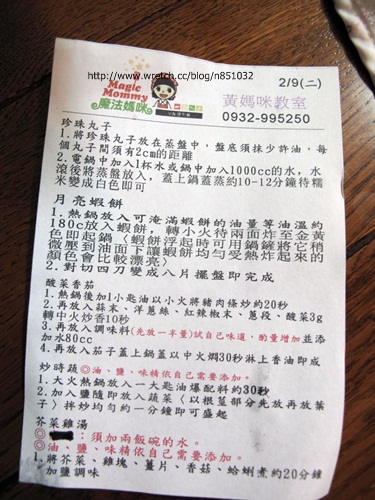 http://www.wretch.cc/blog/n851032
Magic
Mommy
魔法媽咪
2/9(二)
黃媽咪教室
0932-995250
珍珠丸子
1.將珍珠丸子放在蒸盤中，盤底須抹少許油，每
個丸子間須有2cm的距離
2.電鍋中加入1杯水或鍋中加入1000cc的水，水
滾後將蒸盤放入，蓋上鍋蓋蒸約10-12分鐘待糯
米變成白色即可
月亮蝦餅
1.熱鍋放入可淹滿蝦餅的油量等油溫約
180c放入蝦餅，轉小火待兩面炸至金黃
色即起鍋（蝦餅浮起時可用鍋鏟將它稍
微壓到油面下讓蝦餅均勻受熱炸起來的
顏色會比較漂亮）
2.對切四刀變成八片擺盤即完成
酸菜香茄
1.熱鍋後加1小匙油以小火將豬肉條炒約20秒
2.再放入蒜末、洋蔥絲、紅辣椒末、蔥段、酸菜3g
轉中火炒香10秒
3.再放入調味料(先放一半量)試自己味道，酌量增加並添
加水80cc
4.再放入茄子蓋上鍋蓋以中火燜30秒淋上香油即成
炒時蔬◎油、鹽、味精依自己需要添加。
1.大火熱鍋放入一大匙油爆配料約30秒
2.加入鹽隨即放入蔬菜〈以根莖部分先放再放葉
子〉拌炒均勻約一分鐘即可盛起
芥菜雞湯
◎ ：須加兩飯碗的水。
◎油、鹽、味精依自己需要添加。
1.將芥菜、雞塊、薑片、香菇、蛤蜊煮約20分鐘
加鹽調味